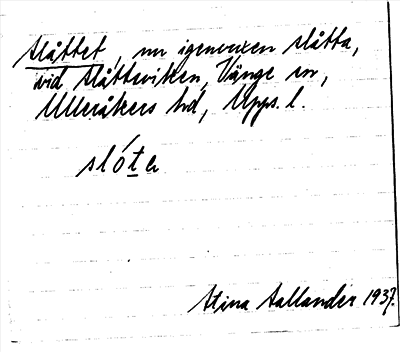 Slåttet, nu igenvuxen slåtta,
vid Slåtteviken, Vänge sn,
Ulleråkers hd, Upps. l.
slóte
Stina Sallander 1937.